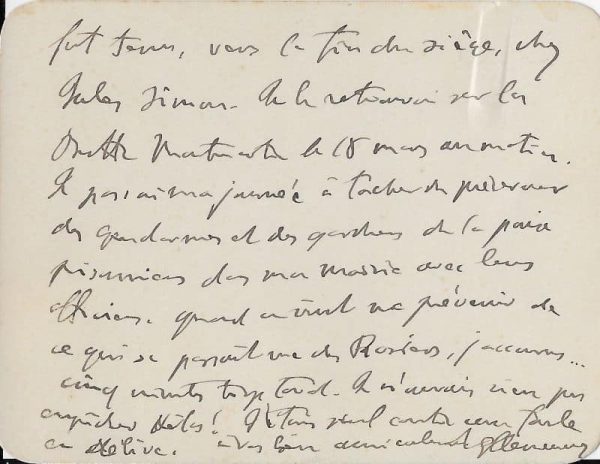 fut tenue, vers la fin du siège, chez
Jules Simon. Je le retrouvai sur la
Butte Montmartre le 18 mars au matin.
Je passai ma journée à tâcher de préserver
des gendarmes et des gardiens de la paix
prisonniers dans ma mairie avec leurs
officiers. Quand on vint me prévenir de
ce qui se passait rue des Rosiers, j'accourus...
cinq minutes trop tard. Je n'aurais rien pu
empêcher hélas! J'étais seul contre une foule
en délire. bien amicalement GClemenceau